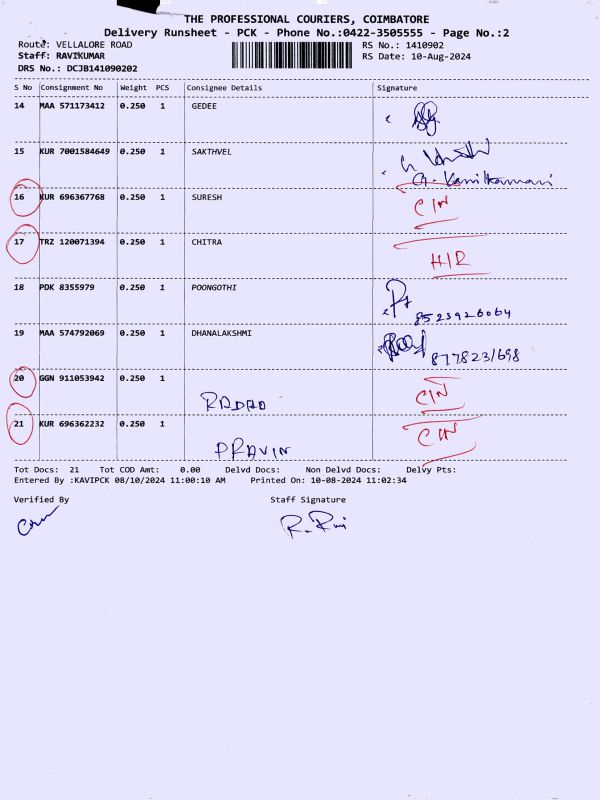 THE PROFESSIONAL COURIERS, COIMBATORE
Delivery Runsheet - PCK - Phone No.:0422-3505555 - Page No.:2
Route: VELLALORE ROAD
RS No.: 1410902
Staff: RAVIKUMAR
RS Date: 10-Aug-2024
DRS No.: DCJB141090202
S No Consignment No Weight PCS Consignee Details Signature
14 MAA 571173412 0.250 1 GEDEE
15 KUR 7001584649 0.250 1 SAKTHVEL
16 KUR 696367768 0.250 1 SURESH CIN
17 TRZ 120071394 0.250 1 CHITRA
HIR
18 PDK 8355979 0.250 1 POONGOTHI
8523926064
19 MAA 574792069 0.250 1 DHANALAKSHMI
8778231698
20 GGN 911053942 0.250 1 CIN
21 KUR 696362232 0.250 1 CIN
PRAVIN
Tot Docs: 21 Tot COD Amt: 0.00 Delvd Docs: Non Delvd Docs: Delvy Pts:
Entered By :KAVIPCK 08/10/2024 11:00:10 AM Printed On: 10-08-2024 11:02:34
Verified By Staff Signature